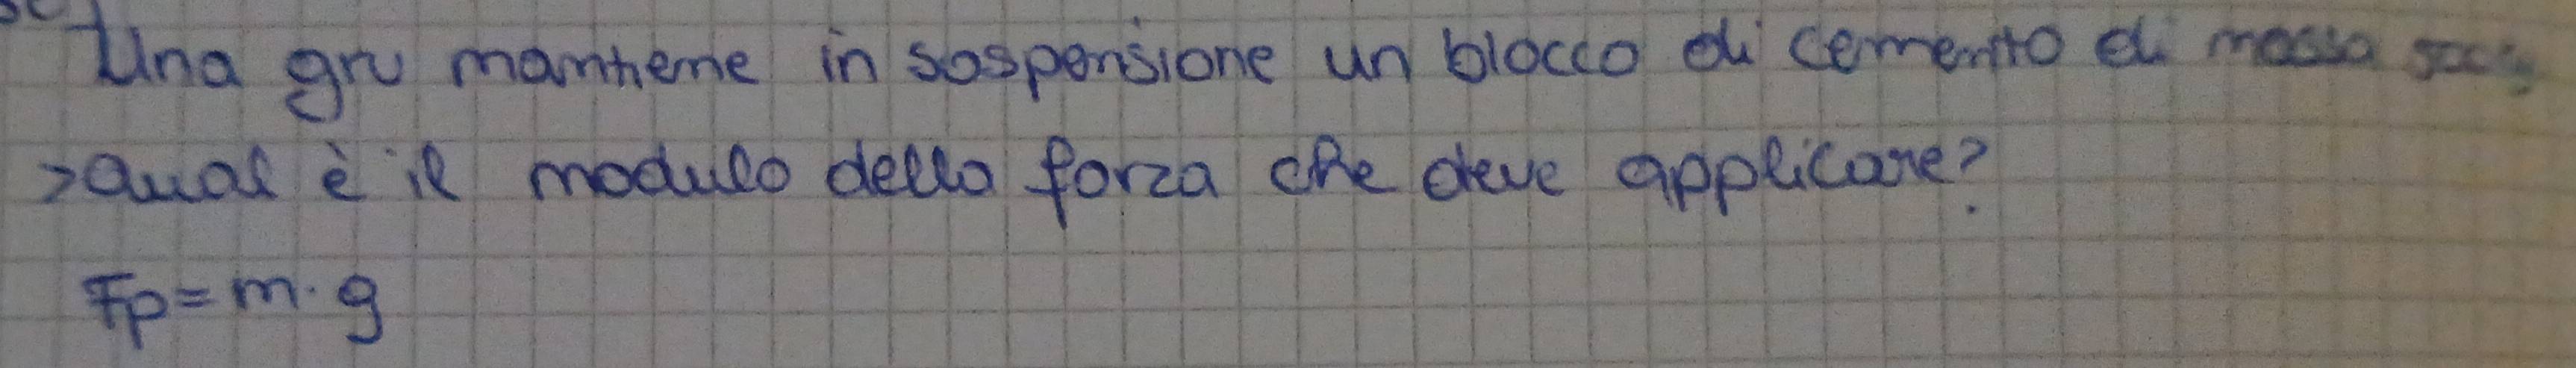 Una gru mantiene in sospensione un blocco di cemento di massa
>Qual è il modulo della forza che deve applicare?
Fp=m·g